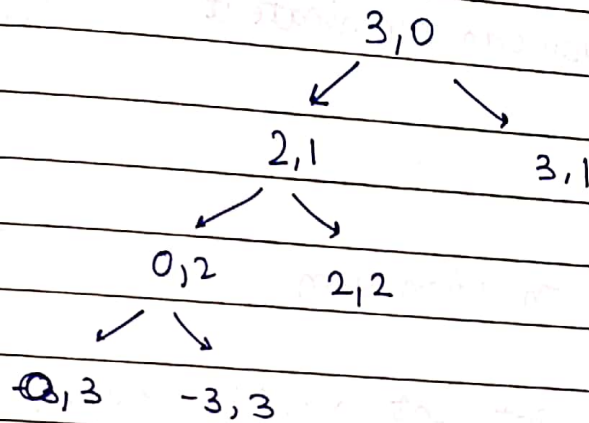 3,0
2,1 3,1
0,2 2,2
,3 -3,3